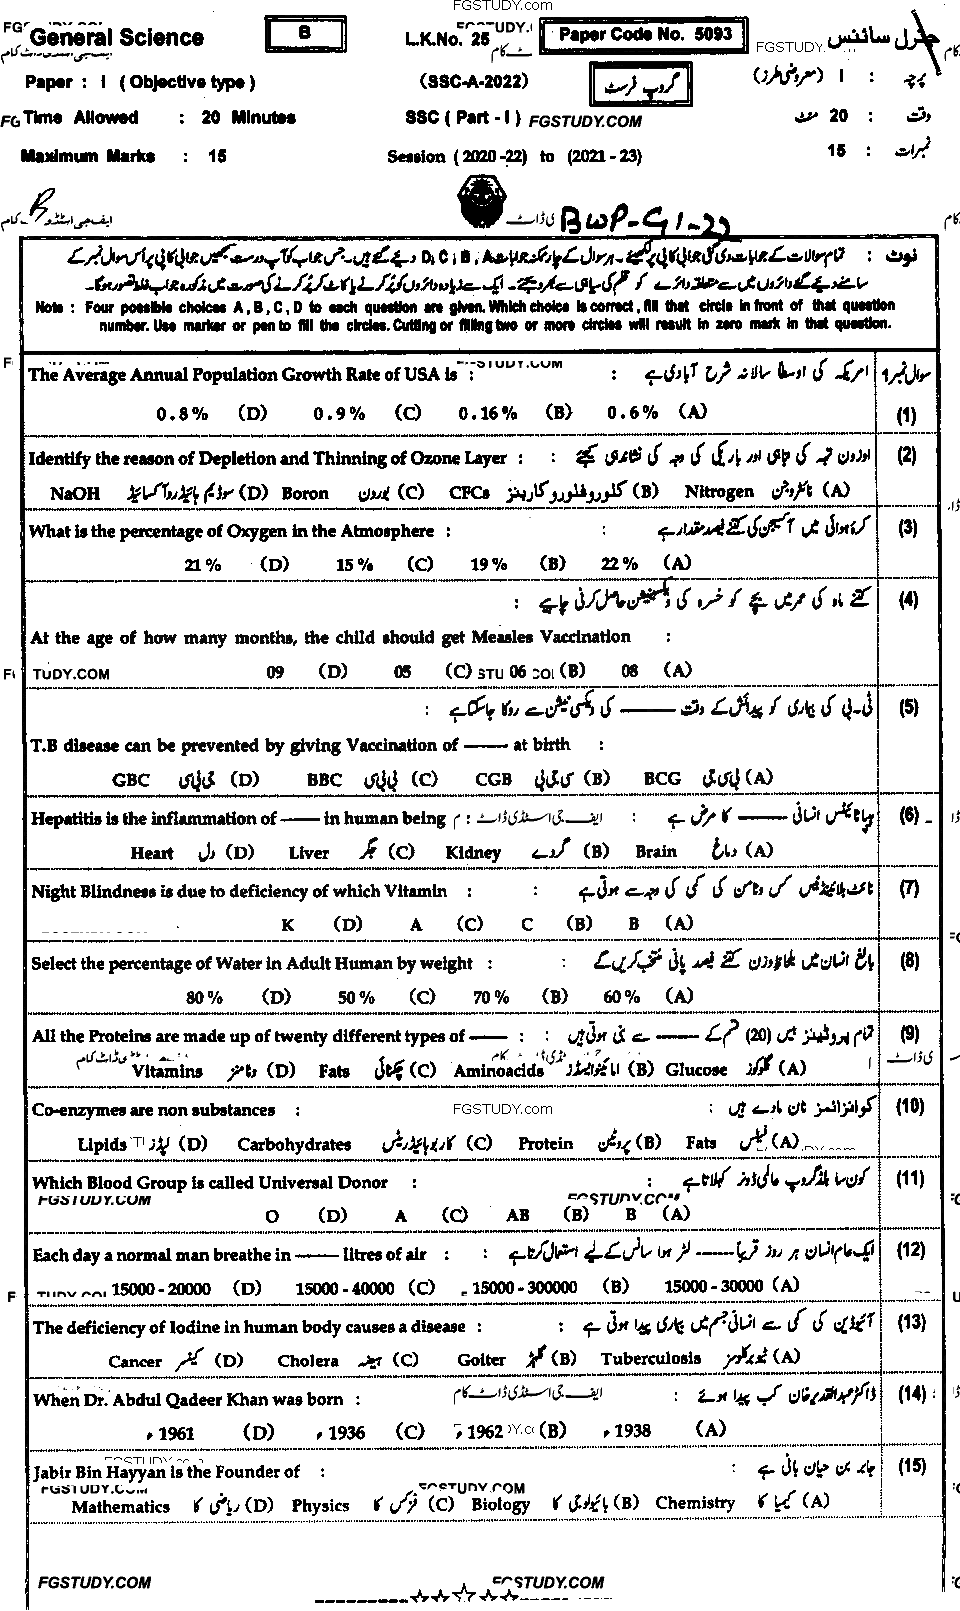 FGSTUDY.com
General Science B L.K.No. 25 Paper Code No. 5093 جنرل سائنس
Paper : I ( Objective type ) (SSC-A-2022) گروپ فرسٹ پرچہ : I (معروضی طرز)
Time Allowed : 20 Minutes SSC ( Part - I ) FGSTUDY.COM وقت : 20 منٹ
Maximum Marks : 15 Session ( 2020 -22) to (2021 - 23) نمبرات : 15
BWP-G1-22
نوٹ : تمام سوالات کے جوابات دی گئی جوابی کاپی پر لکھیئے۔ ہر سوال کے چار ممکنہ جوابات D, C, B, A دیئے گئے ہیں۔ جس جواب کو آپ درست سمجھیں جوابی کاپی پر اُس سوال نمبر کے
سامنے دیئے گئے دائروں میں سے متعلقہ دائرے کو قلم کی سیاہی سے بھر دیجئے۔ ایک سے زیادہ دائروں کو پُر کرنے یا کاٹ کر پُر کرنے کی صورت میں مذکورہ جواب غلط تصور ہوگا۔
Note : Four possible choices A , B , C , D to each question are given. Which choice is correct , fill that circle in front of that question
number. Use marker or pen to fill the circles. Cutting or filling two or more circles will result in zero mark in that question.
سوال نمبر ۱ امریکہ کی اوسطاً سالانہ شرح آبادی ہے :
The Average Annual Population Growth Rate of USA is :
0.8 % (D) 0.9 % (C) 0.16 % (B) 0.6 % (A) (1)
Identify the reason of Depletion and Thinning of Ozone Layer : : اوزون تہہ کی تباہی اور باریکی کی وجہ کی نشاندہی کیجئے (2)
NaOH سوڈیم ہائیڈروآکسائیڈ (D) Boron بورون (C) CFCs کلوروفلوروکاربنز (B) Nitrogen نائٹروجن (A)
What is the percentage of Oxygen in the Atmosphere : : کرہ ہوائی میں آکسیجن کی کتنے فیصد مقدار ہے (3)
21 % (D) 15 % (C) 19 % (B) 22 % (A)
کتنے ماہ کی عمر میں بچے کو خسرہ کی ویکسینیشن حاصل کرنی چاہیے : (4)
At the age of how many months, the child should get Measles Vaccination :
09 (D) 05 (C) 06 (B) 08 (A)
ٹی-بی کی بیماری کو پیدائش کے وقت —— کی ویکسی نیشن سے روکا جاسکتا ہے : (5)
T.B disease can be prevented by giving Vaccination of —— at birth :
GBC جی بی سی (D) BBC بی بی سی (C) CGB سی جی بی (B) BCG بی سی جی (A)
Hepatitis is the inflammation of —— in human being : ہیپاٹائٹس انسانی —— کا مرض ہے (6)
Heart دل (D) Liver جگر (C) Kidney گردے (B) Brain دماغ (A)
Night Blindness is due to deficiency of which Vitamin : : نائٹ بلائینڈنیس کس وٹامن کی کمی کی وجہ سے ہوتی ہے (7)
K (D) A (C) C (B) B (A)
Select the percentage of Water in Adult Human by weight : : بالغ انسان میں بلحاظ وزن کتنے فیصد پانی منتخب کریں گے (8)
80 % (D) 50 % (C) 70 % (B) 60 % (A)
All the Proteins are made up of twenty different types of —— : : تمام پروٹینز بیس (20) قسم کے —— سے بنی ہوتی ہیں (9)
Vitamins وٹامنز (D) Fats چکنائی (C) Aminoacids امائنوایسڈز (B) Glucose گلوکوز (A)
Co-enzymes are non substances : FGSTUDY.com : کوانزائمز نان مادے ہیں (10)
Lipids لپڈز (D) Carbohydrates کاربوہائیڈریٹس (C) Protein پروٹین (B) Fats فیٹس (A)
Which Blood Group is called Universal Donor : : کون سا بلڈ گروپ عالمی ڈونر کہلاتا ہے (11)
FGSTUDY.COM FGSTUDY.COM
O (D) A (C) AB (B) B (A)
Each day a normal man breathe in —— litres of air : : ایک عام انسان ہر روز قریباً —— لٹر ہوا سانس کے لیے استعمال کرتا ہے (12)
15000 - 20000 (D) 15000 - 40000 (C) 15000 - 300000 (B) 15000 - 30000 (A)
The deficiency of Iodine in human body causes a disease : : آئیوڈین کی کمی سے انسانی جسم میں بیماری پیدا ہوتی ہے (13)
Cancer کینسر (D) Cholera ہیضہ (C) Goiter گلہڑ (B) Tuberculosis ٹیوبرکلوسز (A)
When Dr. Abdul Qadeer Khan was born : ایف جی اسٹڈی ڈاٹ کام : ڈاکٹر عبدالقدیر خان کب پیدا ہوئے (14)
1961 (D) 1936 (C) 1962 (B) 1938 (A)
Jabir Bin Hayyan is the Founder of : : جابر بن حیان بانی ہے (15)
FGSTUDY.COM FGSTUDY.COM
Mathematics ریاضی کا (D) Physics فزکس کا (C) Biology بائیولوجی کا (B) Chemistry کیمیا کا (A)
FGSTUDY.COM FGSTUDY.COM